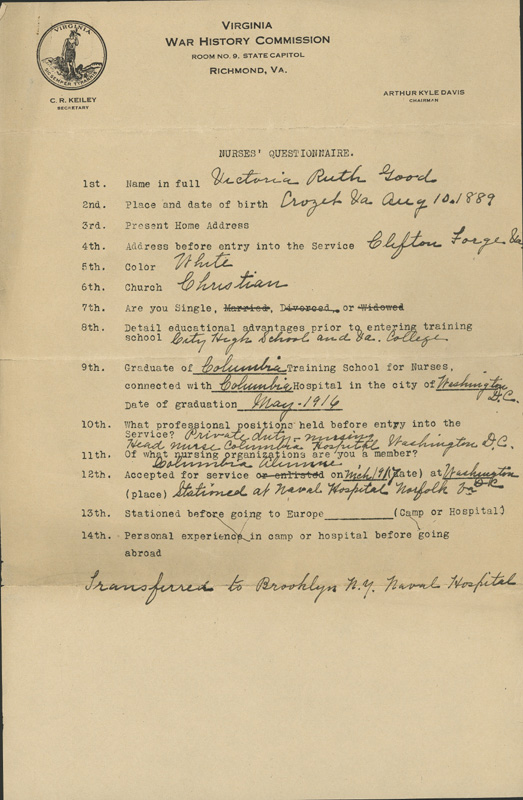 VIRGINIA
SIC SEMPER TYRANNIS
VIRGINIA
WAR HISTORY COMMISSION
ROOM NO. 9, STATE CAPITOL
RICHMOND, VA.
C. R. KEILEY
SECRETARY
ARTHUR KYLE DAVIS
CHAIRMAN
NURSES' QUESTIONNAIRE.
1st. Name in full Victoria Ruth Good
2nd. Place and date of birth Crozet Va Aug 10.1889
3rd. Present Home Address
4th. Address before entry into the Service Clifton Forge Va
5th. Color White
6th. Church Christian
7th. Are you Single, Married, Divorced, or Widowed
8th. Detail educational advantages prior to entering training
school City High School and Va. College
9th. Graduate of Columbia Training School for Nurses,
connected with Columbia Hospital in the city of Washington
D.C.
Date of graduation May-1916
10th. What professional positions held before entry into the
Service? Private duty - nursing
Head nurse Columbia Hospital Washington D.C.
11th. Of what nursing organizations are you a member?
Columbia Alumne
12th. Accepted for service or enlisted on Mch 1917 (date) at Washington
D.C
(place) Stationed at Naval Hospital Norfolk Va
13th. Stationed before going to Europe (Camp or Hospital)
14th. Personal experience in camp or hospital before going
abroad
Transferred to Brooklyn N.Y. Naval Hospital